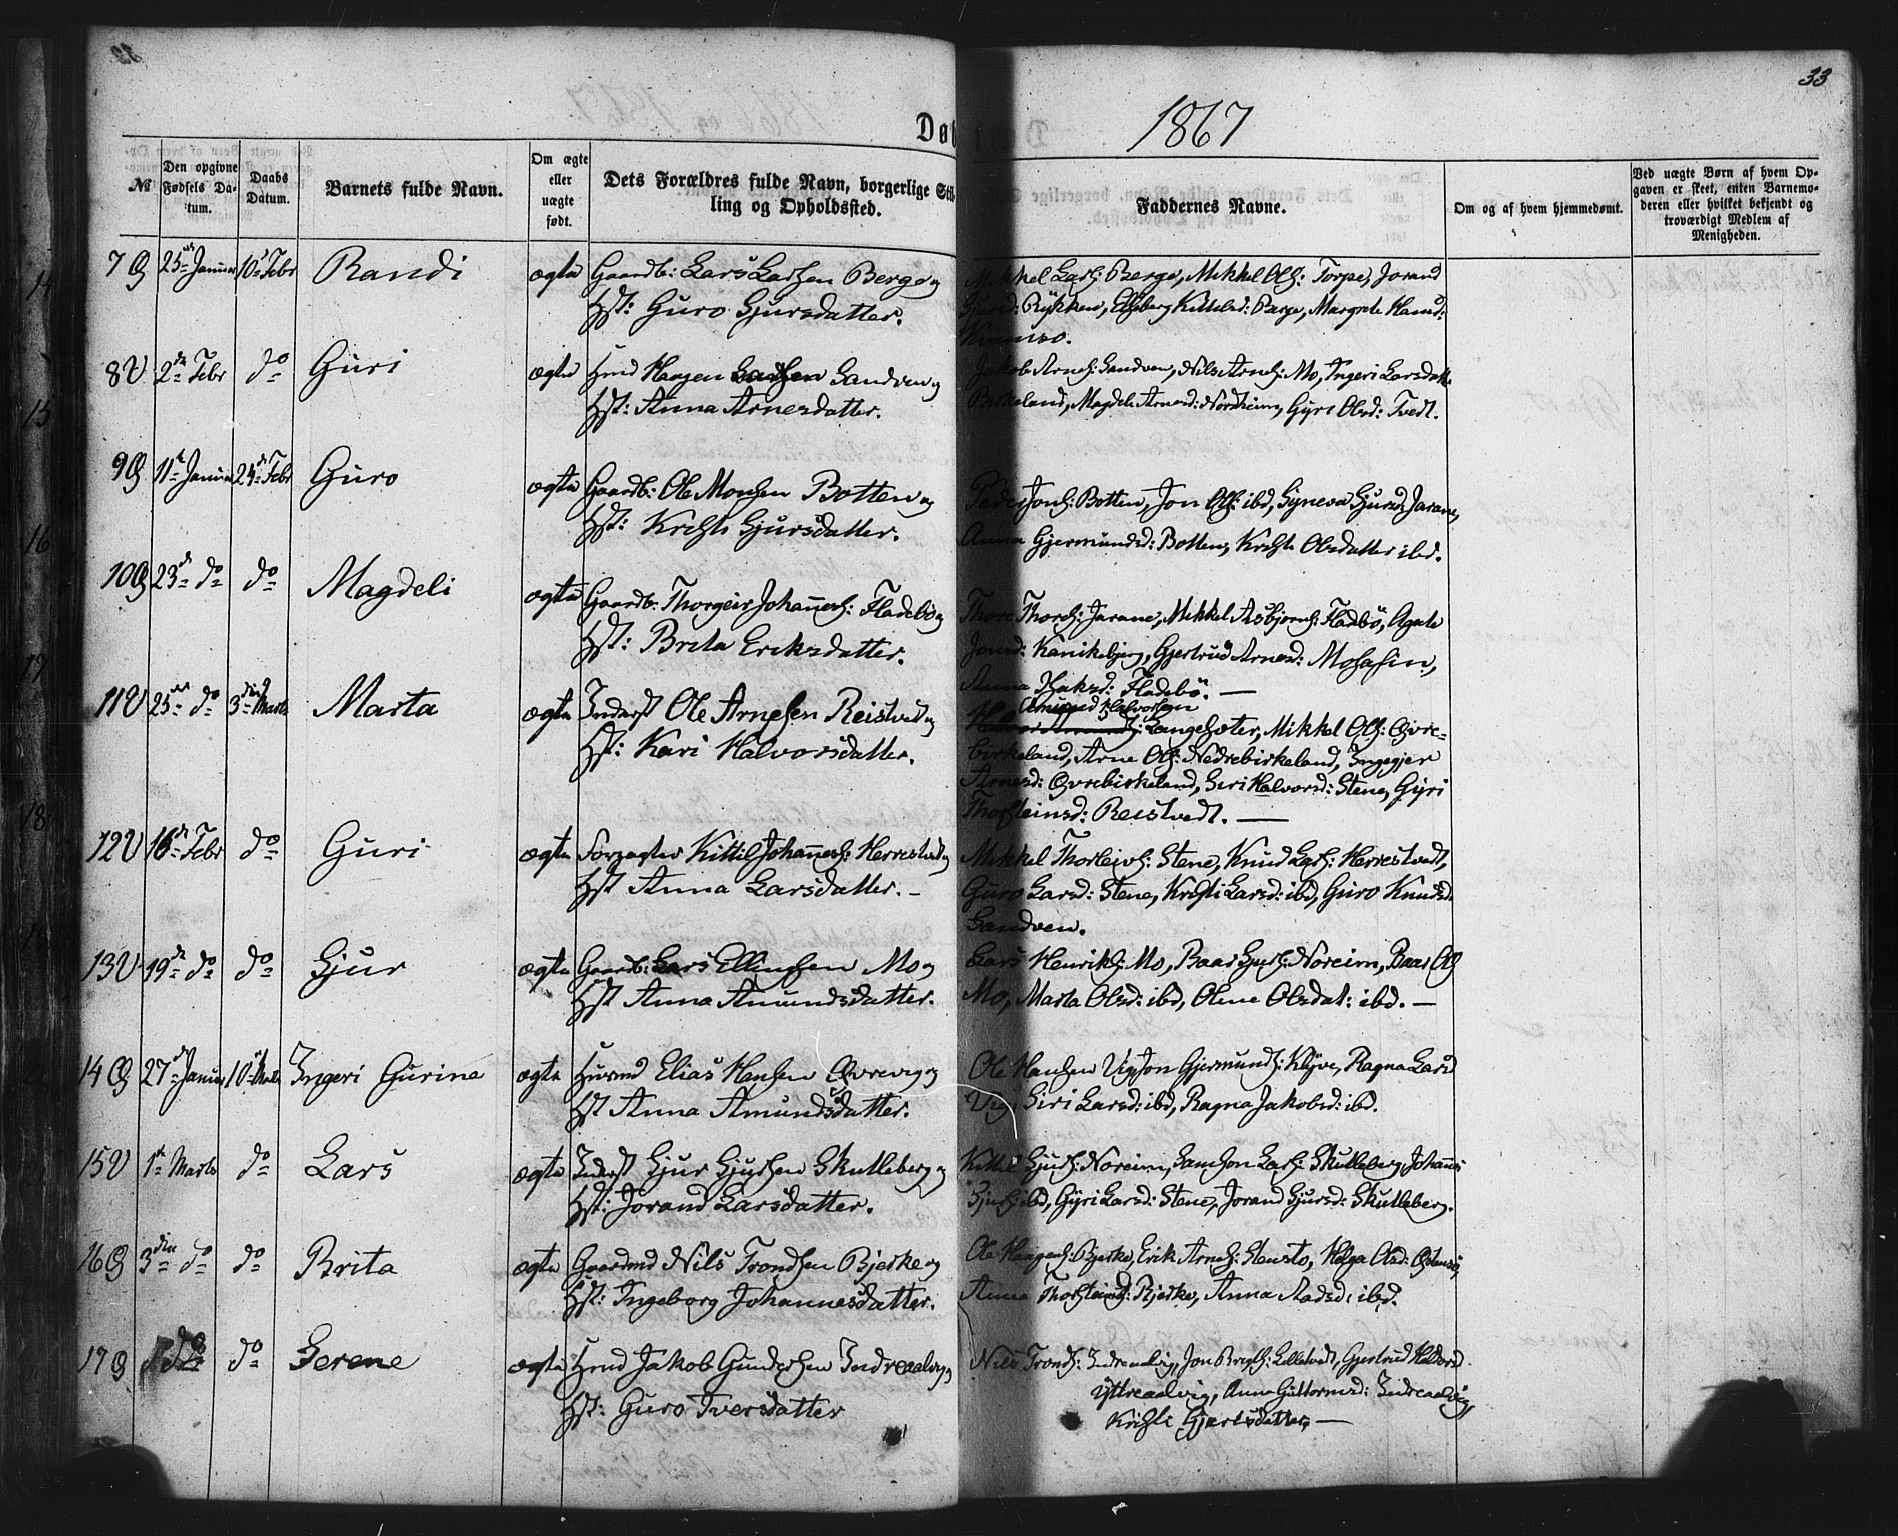 33
1867
Døb
№
Den opgivne Fødsels Datum.
Daabs Datum.
Barnets fulde Navn.
Om ægte eller uægte født.
Dets Forældres fulde Navn, borgerlige Stilling og Opholdssted.
Faddernes Navne.
Om og af hvem hjemmedøbt.
Ved uægte Børn af hvem Opgaven er skeet, enten Barnemoderen eller hvilket bekjendt og troværdigt Medlem af Menigheden.
7 Januar 10 Febr Randi ægte Gaardb: Lars Larsen Berge og
Hst: Guro Sjursdatter.
Mikkel Larss: Berge, Mikkel Ols: Torpe, Jorand
Rykken, Elseberg Kittelsd: Berge, Margrete Hansd:
8 2 Febr do Guri ægte Hmd Haagen Sandven og
Hst: Anna Arnesdatter.
Jakob Arnes: Sandven, Nils Arnes: Mo, Ingeri Larsdatter
Birkeland, Magdeli Arnesd: Nordheim, Gyri Olsd: Tvedt.
9 11 Januar 24 Febr Guro ægte Gaardb: Ole Monsen Botten og
Hst: Kristi Sjursdatter.
Peder Jons: Botten, Jon Ols: ibd, Syneva Sjursd: Jarane,
Anna Gjermundsd: Botten, Kristi Olsdatter ibd.
10 23 do do Magdeli ægte Gaardb: Thorgeir Johanness: Fladebø og
Hst: Brita Eriksdatter.
Thore Thors: Jarane, Mikkel Asbjorns: Fladbö, Agate
Jonsd: Kanikebjerg, Gjertrud Arnesd: Mosafin,
Anna Fladebö. —
11 25 do 3 Marts Marta ægte Inderst Ole Arnesen Reistved og
Hst: Kari Halvorsdatter.
Amund Halvorsen
Langesæter, Mikkel Ols: Øvre-
birkeland, Arne Ols: Nedrebirkeland, Ingegjer
Arnesd: Øvrebirkeland, Siri Halvorsd: Stene, Gyri
Thorsteinsd: Reistvedt. —
12 16 Febr do Guri ægte Kittil Johanness: Herrestved og
Hst Anna Larsdatter. —
Mikkel Thorleivs: Stene, Knud Larss: Herrestvedt,
Guro Larsd: Stene, Kristi Larsd: ibd, Guro Knudsd:
Sandven.
13 19 do do Sjur ægte Gaardb: Lars Ellingsen Mo og
Hst Anna Amundsdatter.
Lars Henriks: Mo, Baar Sjurs: Noreim, Baar Ols
Mo, Marta Olsd: ibd, Olene Olsdat: ibd. —
14 27 Januar 10 Marts Ingeri Gurine ægte Huusmd Elias Hansen Øvrevig og
Hst Anna Amundsdatter.
Ole Hansen Vig, Jon Gjermunds: Klyve, Ragna Larsd
Vig, Siri Larsd: ibd, Ragna Jakobsd: ibd.
15 1 Marts do Lars ægte Inderst Sjur Sjursen Skutleberg og
Hst: Jorand Larsdatter.
Kittil Sjurs: Noreim, Samson Larss: Skutleberg, Johannes
Sjurs: ibd, Gyri Larsd: Stene, Jorand Sjursd: Skutleberg.
16 3 do do Brita ægte Gaardmd Nils Trondsen Bjerke og
Hst: Ingeborg Johannesdatter.
Ole Haagens: Bjerke, Erik Arnes: Stensto, Helga Olsd: Østensø,
Anna Thorsteinsd: Bjerke, Anna Aadsd: ibd.
17 do do Serene ægte Hmd Jakob Gundersen Indreaalvig og
Hst: Guro Iversdatter
Nils Tronds: Indreaalvig, Jon Lillletvedt, Gjertrud Haldorsd:
Yttreaalvig, Anna Guttormsd: Indreaalvig,
Kristi Gjertsdatter. —